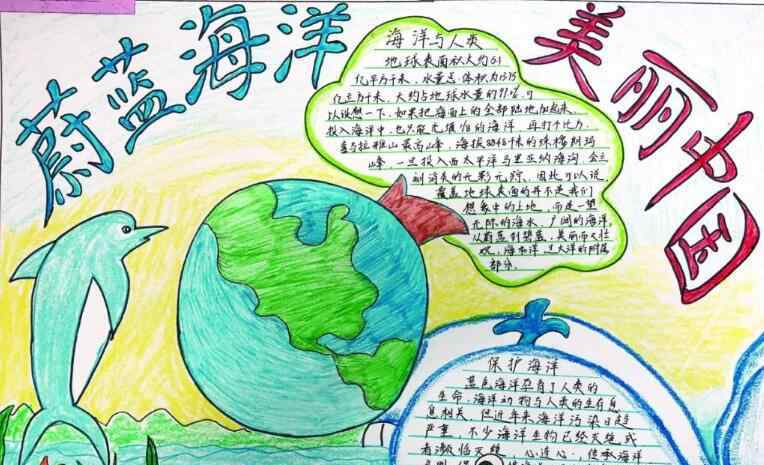 蔚蓝海洋
美丽中国
海洋与人类
地球表面积大约61
亿平方千米，水量总体积为1375
亿立方千米，大约占地球水量的97%，可
以设想一下，如果把海面上的全部陆地加起来
投入海洋中，也只能充填的海洋，再打个比方，
喜马拉雅山最高峰，海拔8848千米的珠穆朗玛
峰，一旦投入西太平洋马里亚纳海沟，会立
刻消失的无影无踪，因此可以说，
覆盖地球表面的并不是我们
想象中的土地，而是一望
无际的海水，广阔的海洋，
从蔚蓝到碧蓝，美丽而又壮
观，海和洋大洋的附属
部分。
保护海洋
蓝色海洋孕育了人类的
生命，海洋动物与人类的生存息
息相关，但近年来海洋污染日趋
严重，不少海洋生物已经灭绝或
者濒临灭绝，心连心，传承海洋